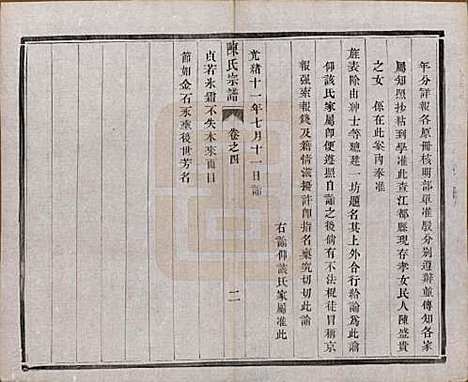 年分詳報各原冊核明部單准駁分別遵辦並傳知各家
屬知照抄粘到學准此查江都縣現存孝女民人陳盛貴
之女 係在此案內奉准
旌表除由紳士等總建一坊題名其上外合行給諭爲此諭
仰該氏家屬即便遵照自諭之後倘有不法棍徒冒稱京
報强索報錢及藉情滋擾許即指名稟究切切此諭
右諭仰該氏家屬准此
光緒十一年七月十一日諭
陳氏宗譜 卷之四 二
貞若氷霜不失本來面目
節如金石永垂後世芳名